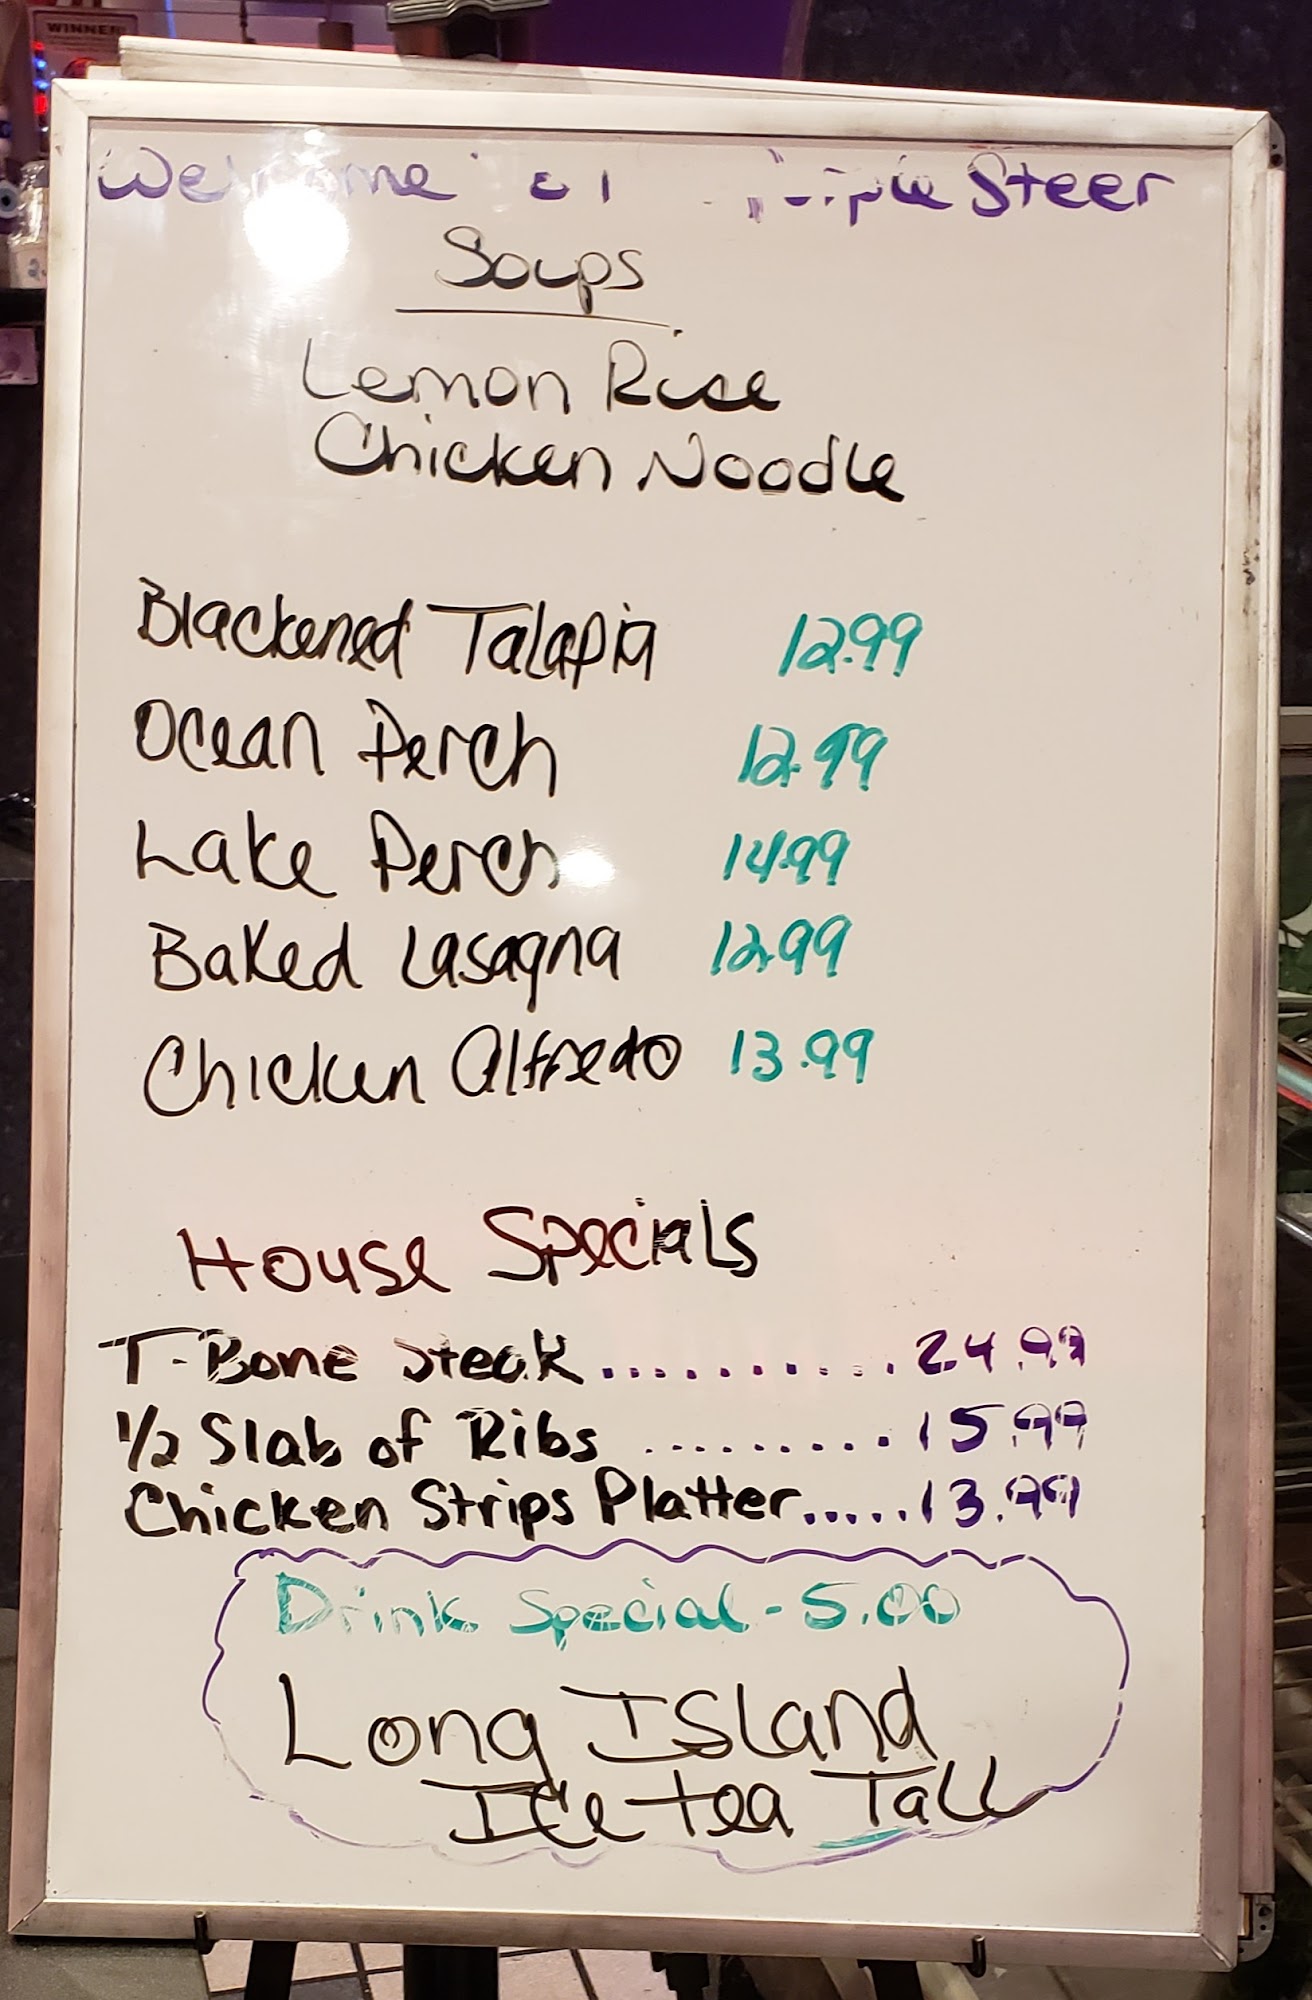 WINNER!
Welcome
Steer
Soups
Lemon Rice
Chicken Noodle
Blackened Talapia 12.99
Ocean Perch 12.99
Lake Perch 14.99
Baked Lasagna 12.99
Chicken Alfredo 13.99
House Specials
T-Bone Steak........... 24.99
1/2 Slab of Ribs ......... 15.99
Chicken Strips Platter..... 13.99
Drink Special - 5.00
Long Island
Ice tea Tall